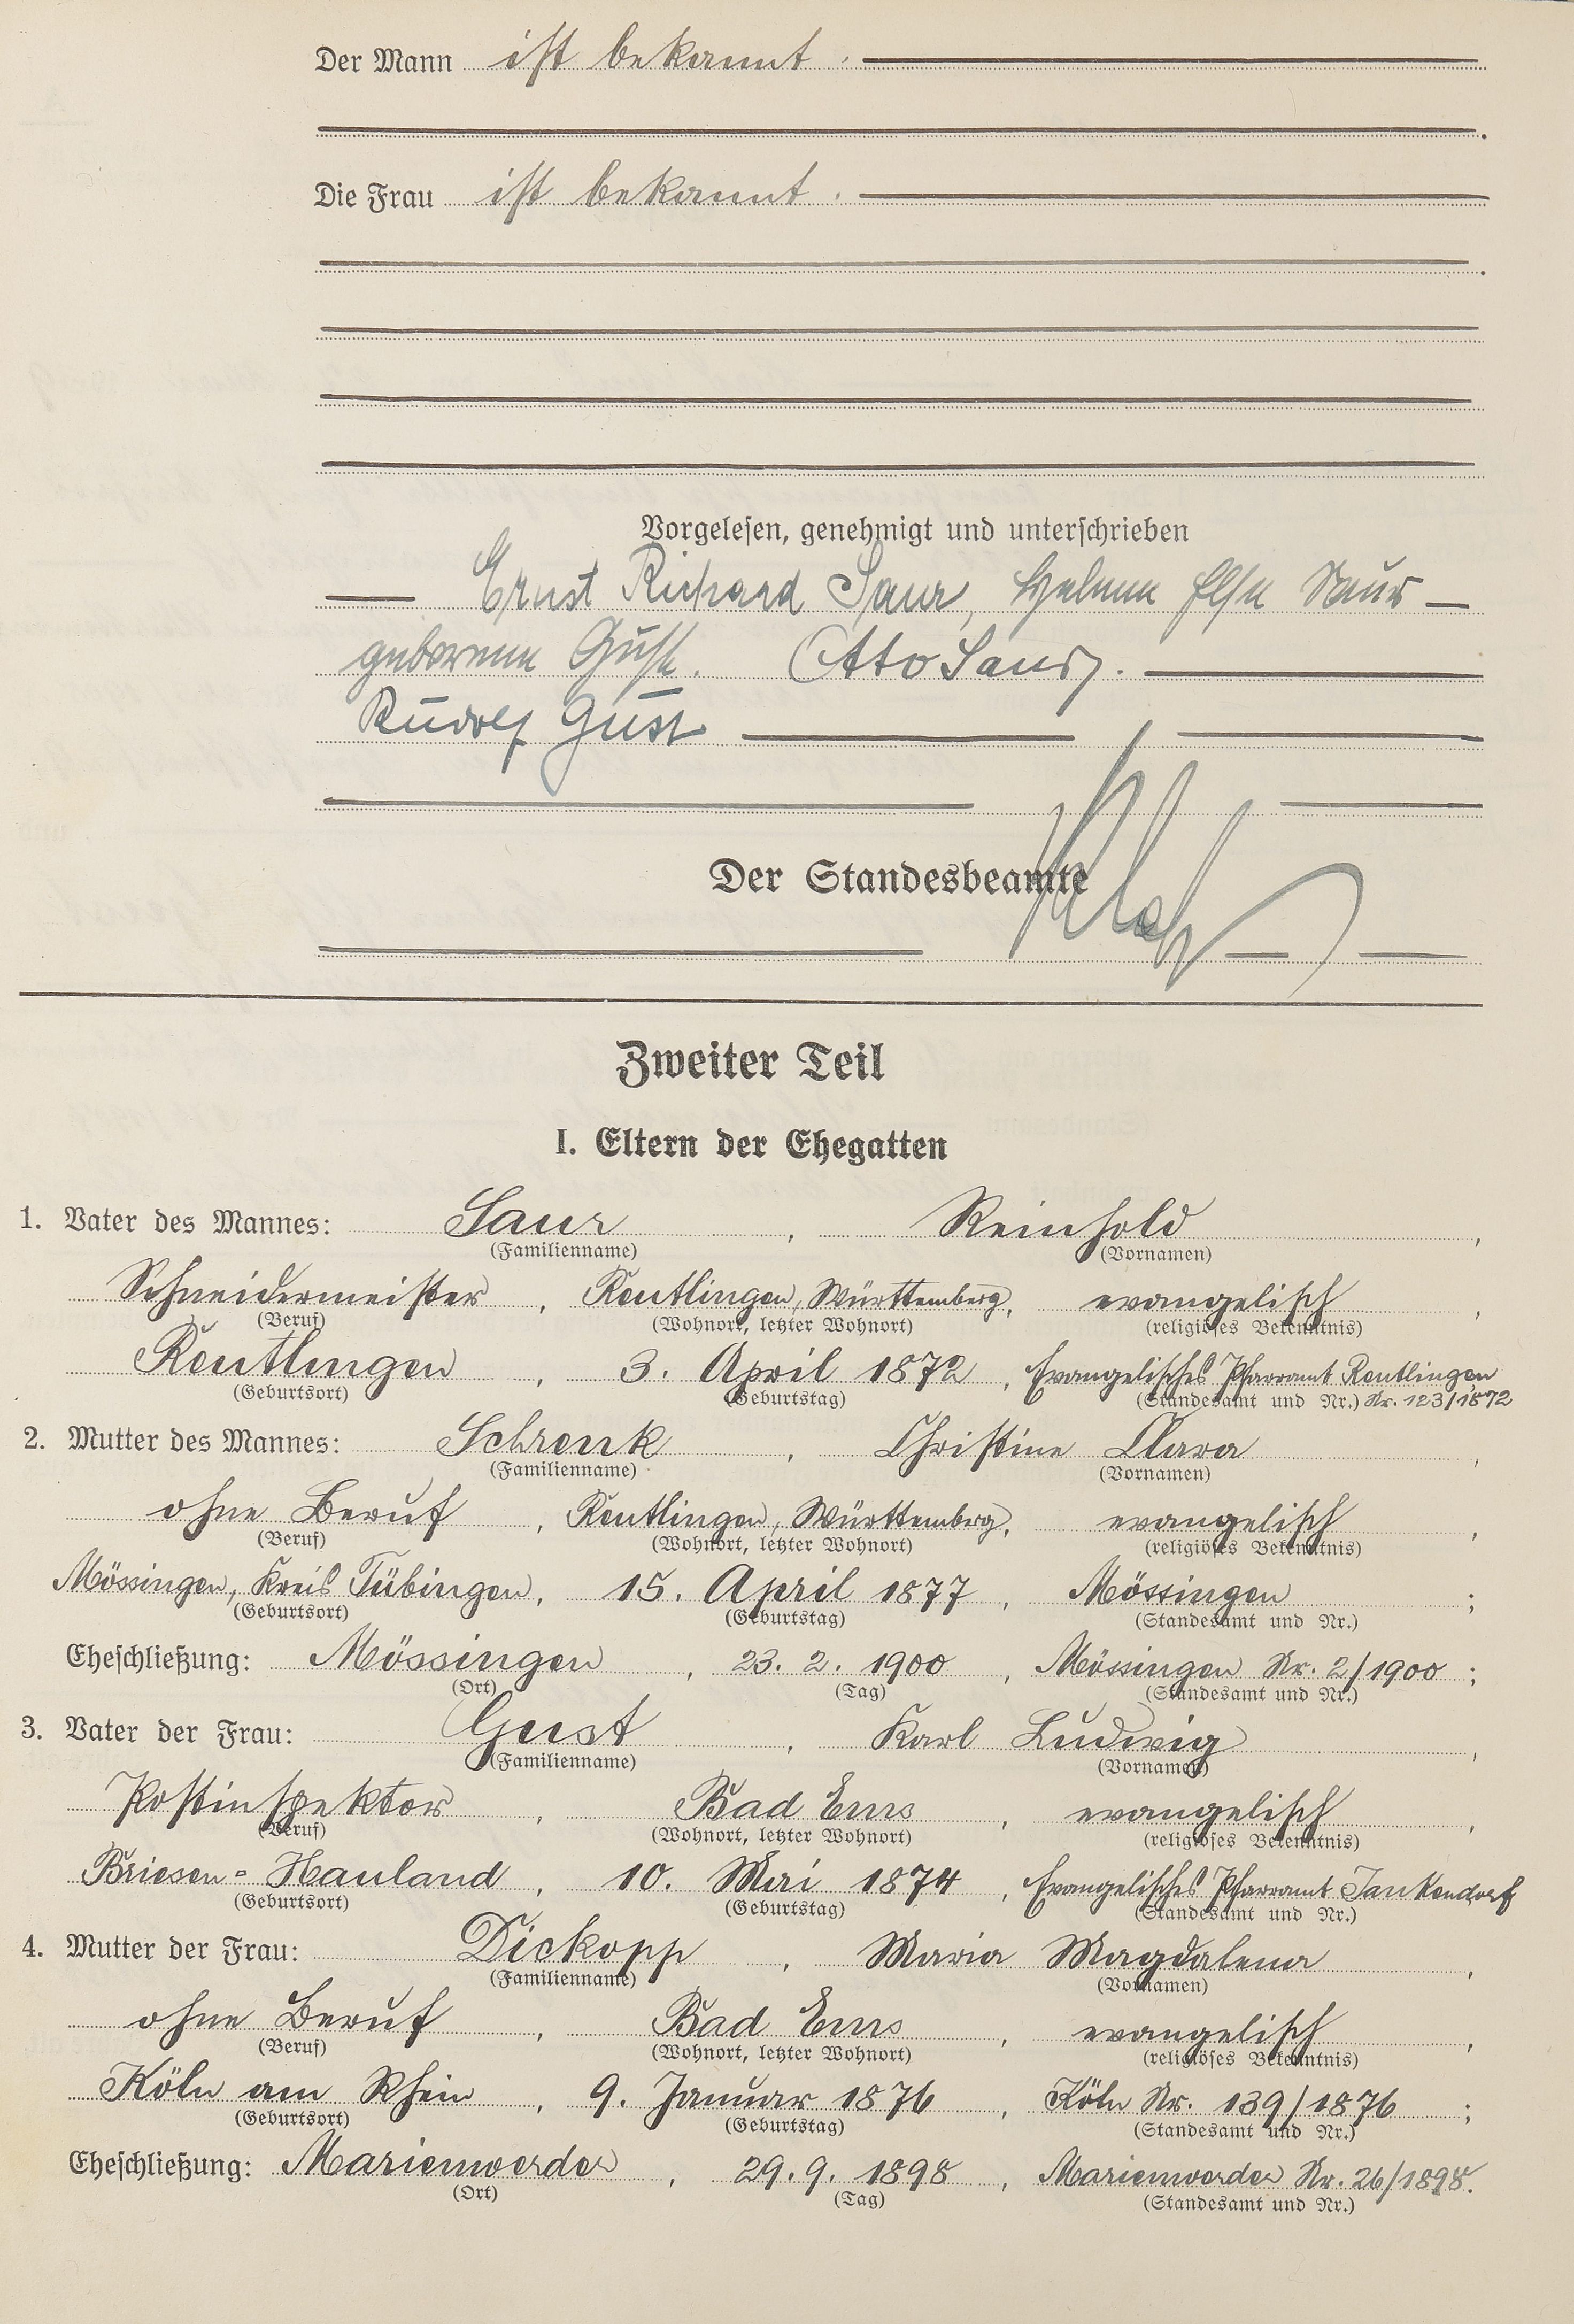 Der Mann ist bekannt.
Die Frau ist bekannt.
Vorgelesen, genehmigt und unterschrieben
Ernst Richard Saur, Helene Else Saur
geborene Gust. Otto Saur.
Rudolf Gust
Der Standesbeamte
Zweiter Teil
I. Eltern der Ehegatten
1. Vater des Mannes: Saur, Reinhold,
(Familienname) (Vornamen)
Schneidermeister, Reutlingen, Württemberg, evangelisch,
(Beruf) (Wohnort, letzter Wohnort) (religiöses Bekenntnis)
Reutlingen, 3. April 1872, Evangelisches Pfarramt Reutlingen
(Geburtsort) (Geburtstag) (Standesamt und Nr.) Nr. 123/1872
2. Mutter des Mannes: Schrenk, Christine Clara,
(Familienname) (Vornamen)
ohne Beruf, Reutlingen, Württemberg, evangelisch,
(Beruf) (Wohnort, letzter Wohnort) (religiöses Bekenntnis)
Mössingen, Kreis Tübingen, 15. April 1877, Mössingen;
(Geburtsort) (Geburtstag) (Standesamt und Nr.)
Eheschließung: Mössingen, 23. 2. 1900, Mössingen Nr. 2/1900;
(Ort) (Tag) (Standesamt und Nr.)
3. Vater der Frau: Gust, Karl Ludwig,
(Familienname) (Vornamen)
Postinspektor, Bad Ems, evangelisch,
(Beruf) (Wohnort, letzter Wohnort) (religiöses Bekenntnis)
Briesen-Hauland, 10. Mai 1874, Evangelisches Pfarramt Jankendorf
(Geburtsort) (Geburtstag) (Standesamt und Nr.)
4. Mutter der Frau: Dickopp, Maria Magdalena,
(Familienname) (Vornamen)
ohne Beruf, Bad Ems, evangelisch,
(Beruf) (Wohnort, letzter Wohnort) (religiöses Bekenntnis)
Köln am Rhein, 9. Januar 1876, Köln Nr. 139/1876;
(Geburtsort) (Geburtstag) (Standesamt und Nr.)
Eheschließung: Marienwerder, 29. 9. 1898, Marienwerder Nr. 26/1898.
(Ort) (Tag) (Standesamt und Nr.)